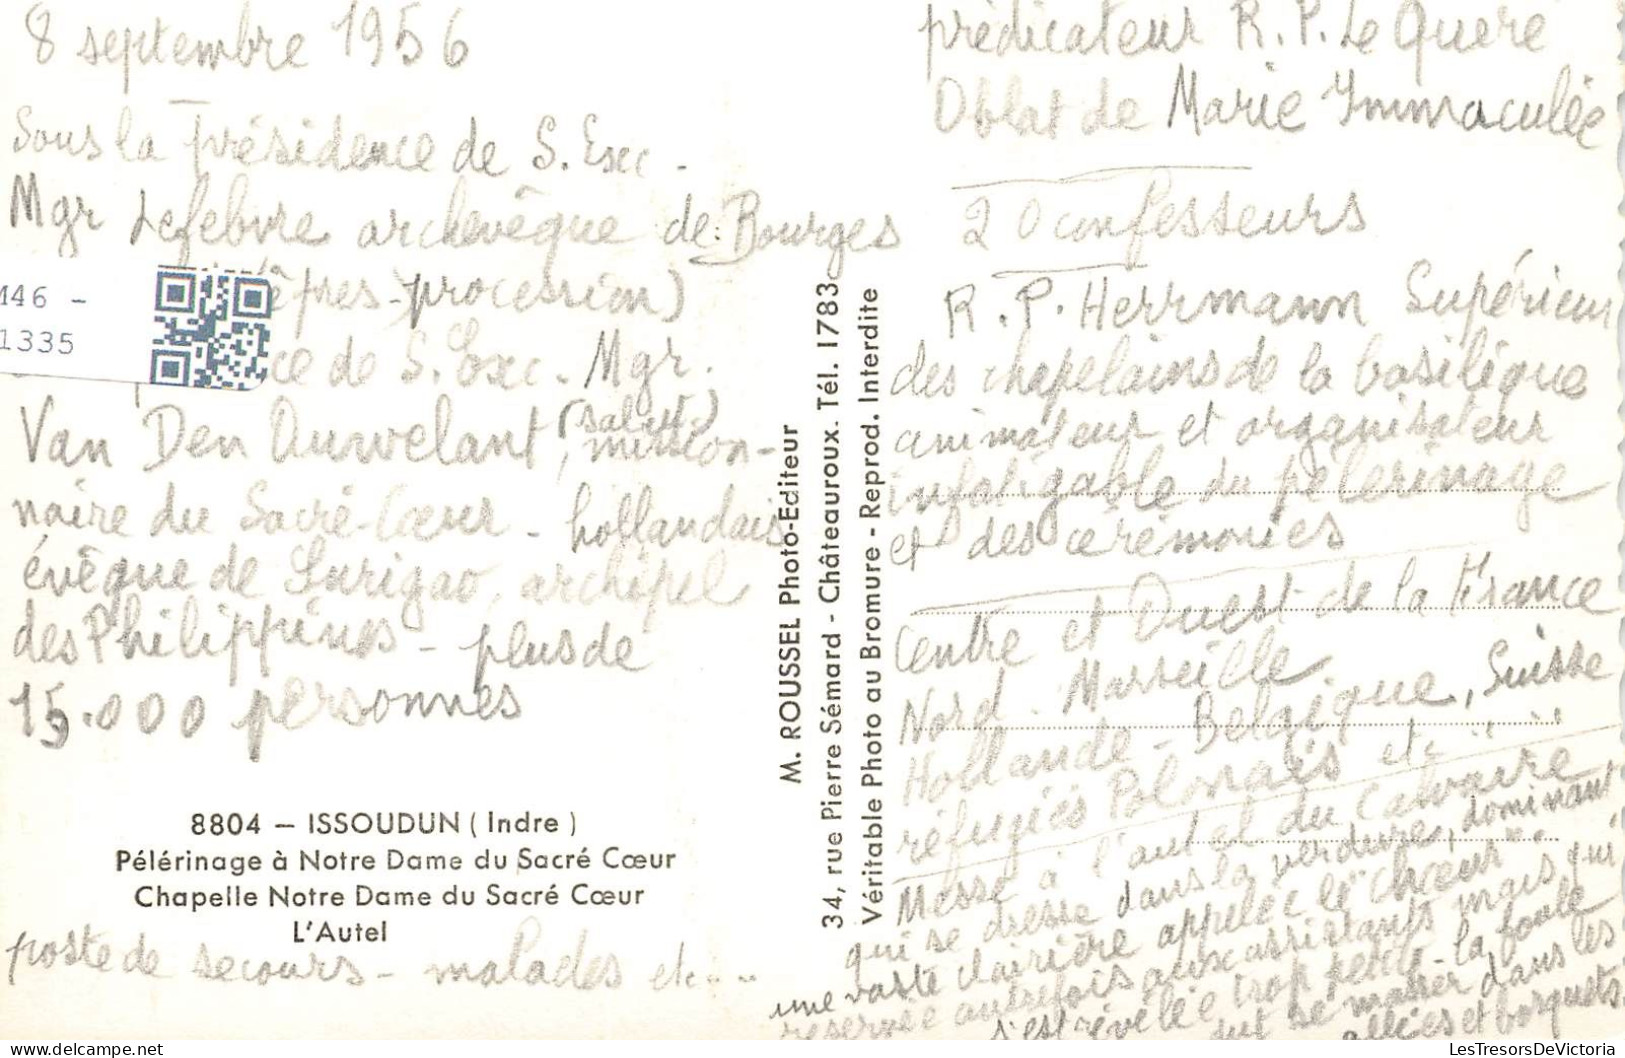 8 septembre 1956
Sous la présidence de S. Exc.
Mgr Lefebvre archevêque de Bourges
pres - procession)
ce de S. Exc. Mgr.
Van Den Ouwelant, (salut) mission-
naire du Sacré-Cœur - hollandais
évêque de Surigao, archipel
des Philippines - plus de
15.000 personnes
M46 -
1335
8804 - ISSOUDUN ( Indre )
Pélérinage à Notre Dame du Sacré Cœur
Chapelle Notre Dame du Sacré Cœur
L'Autel
poste de secours - malades etc...
M. ROUSSEL Photo-Editeur
34, rue Pierre Sémard - Châteauroux. Tél. 1783
Véritable Photo au Bromure - Reprod. Interdite
prédicateur R. P. Le Quere
Oblat de Marie Immaculée
20 confesseurs
R. P. Herrmann Supérieur
des chapelains de la basilique
animateur et organisateur
infatigable du pélerinage
et des cérémonies
Centre et Ouest de la France
Nord. Marseille
Hollande - Belgique, Suisse
réfugiés Polonais etc...
Messe à l'autel du Calvaire
qui se dresse dans la verdure, dominant
une vaste clairière appelée le "chœur"
reservée autrefois aux assistants mais qui
s'est révélée trop petite - la foule
dut se masser dans les
allées et bosquets.
LesTresorsDeVictoria